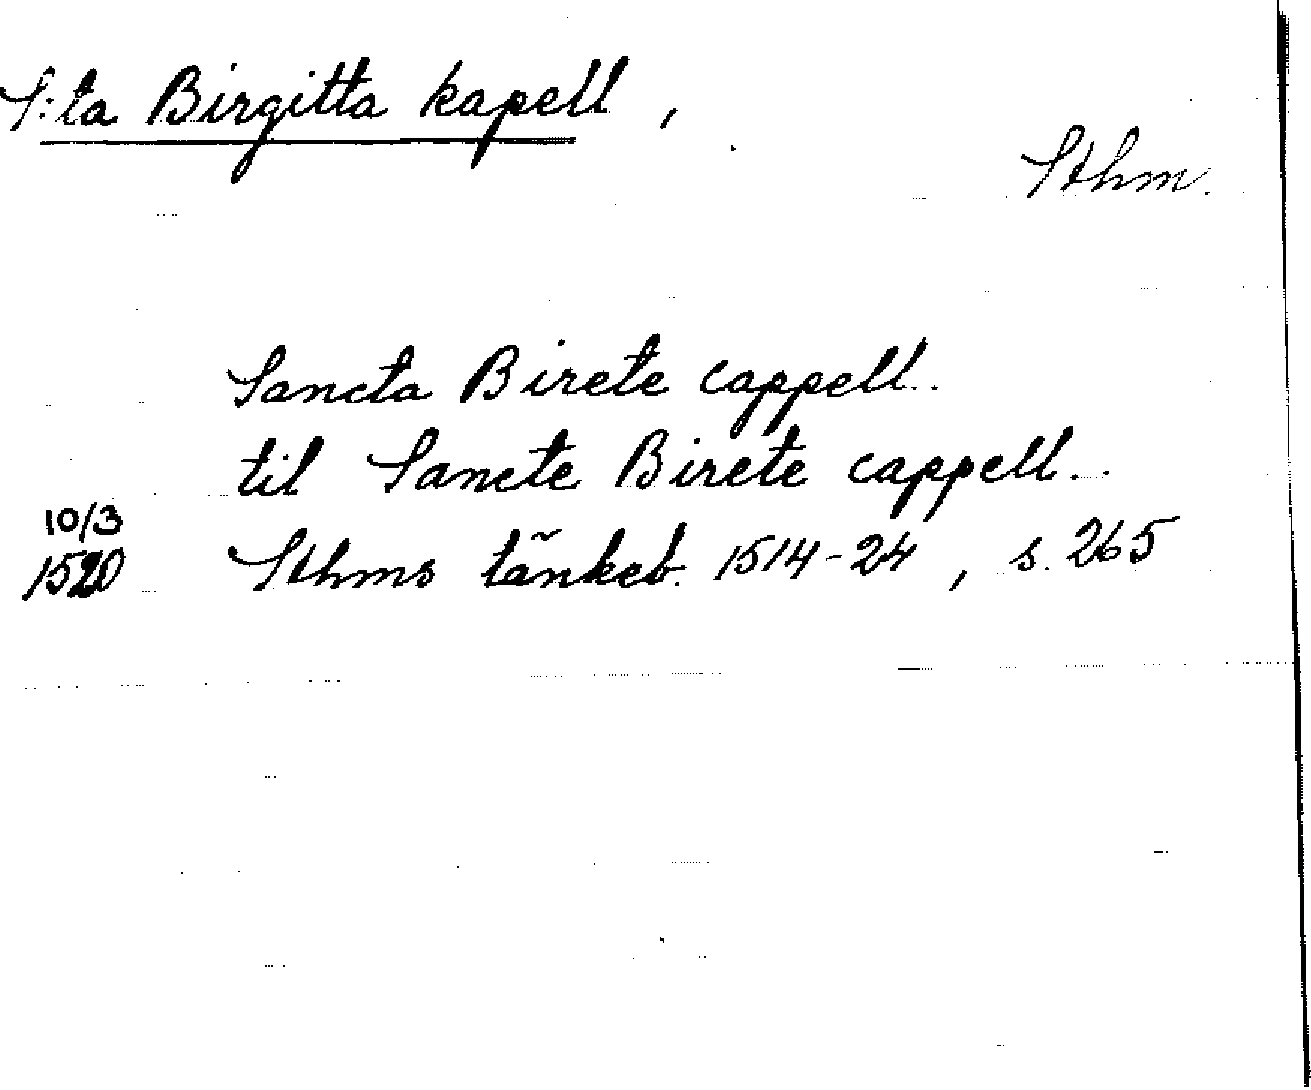 S:ta Birgitta kapell,
Sthm.
Sancta Birete cappell.
til Sancte Birete cappell.
10/3
1520 Sthms tänkeb. 1514-24, s. 265